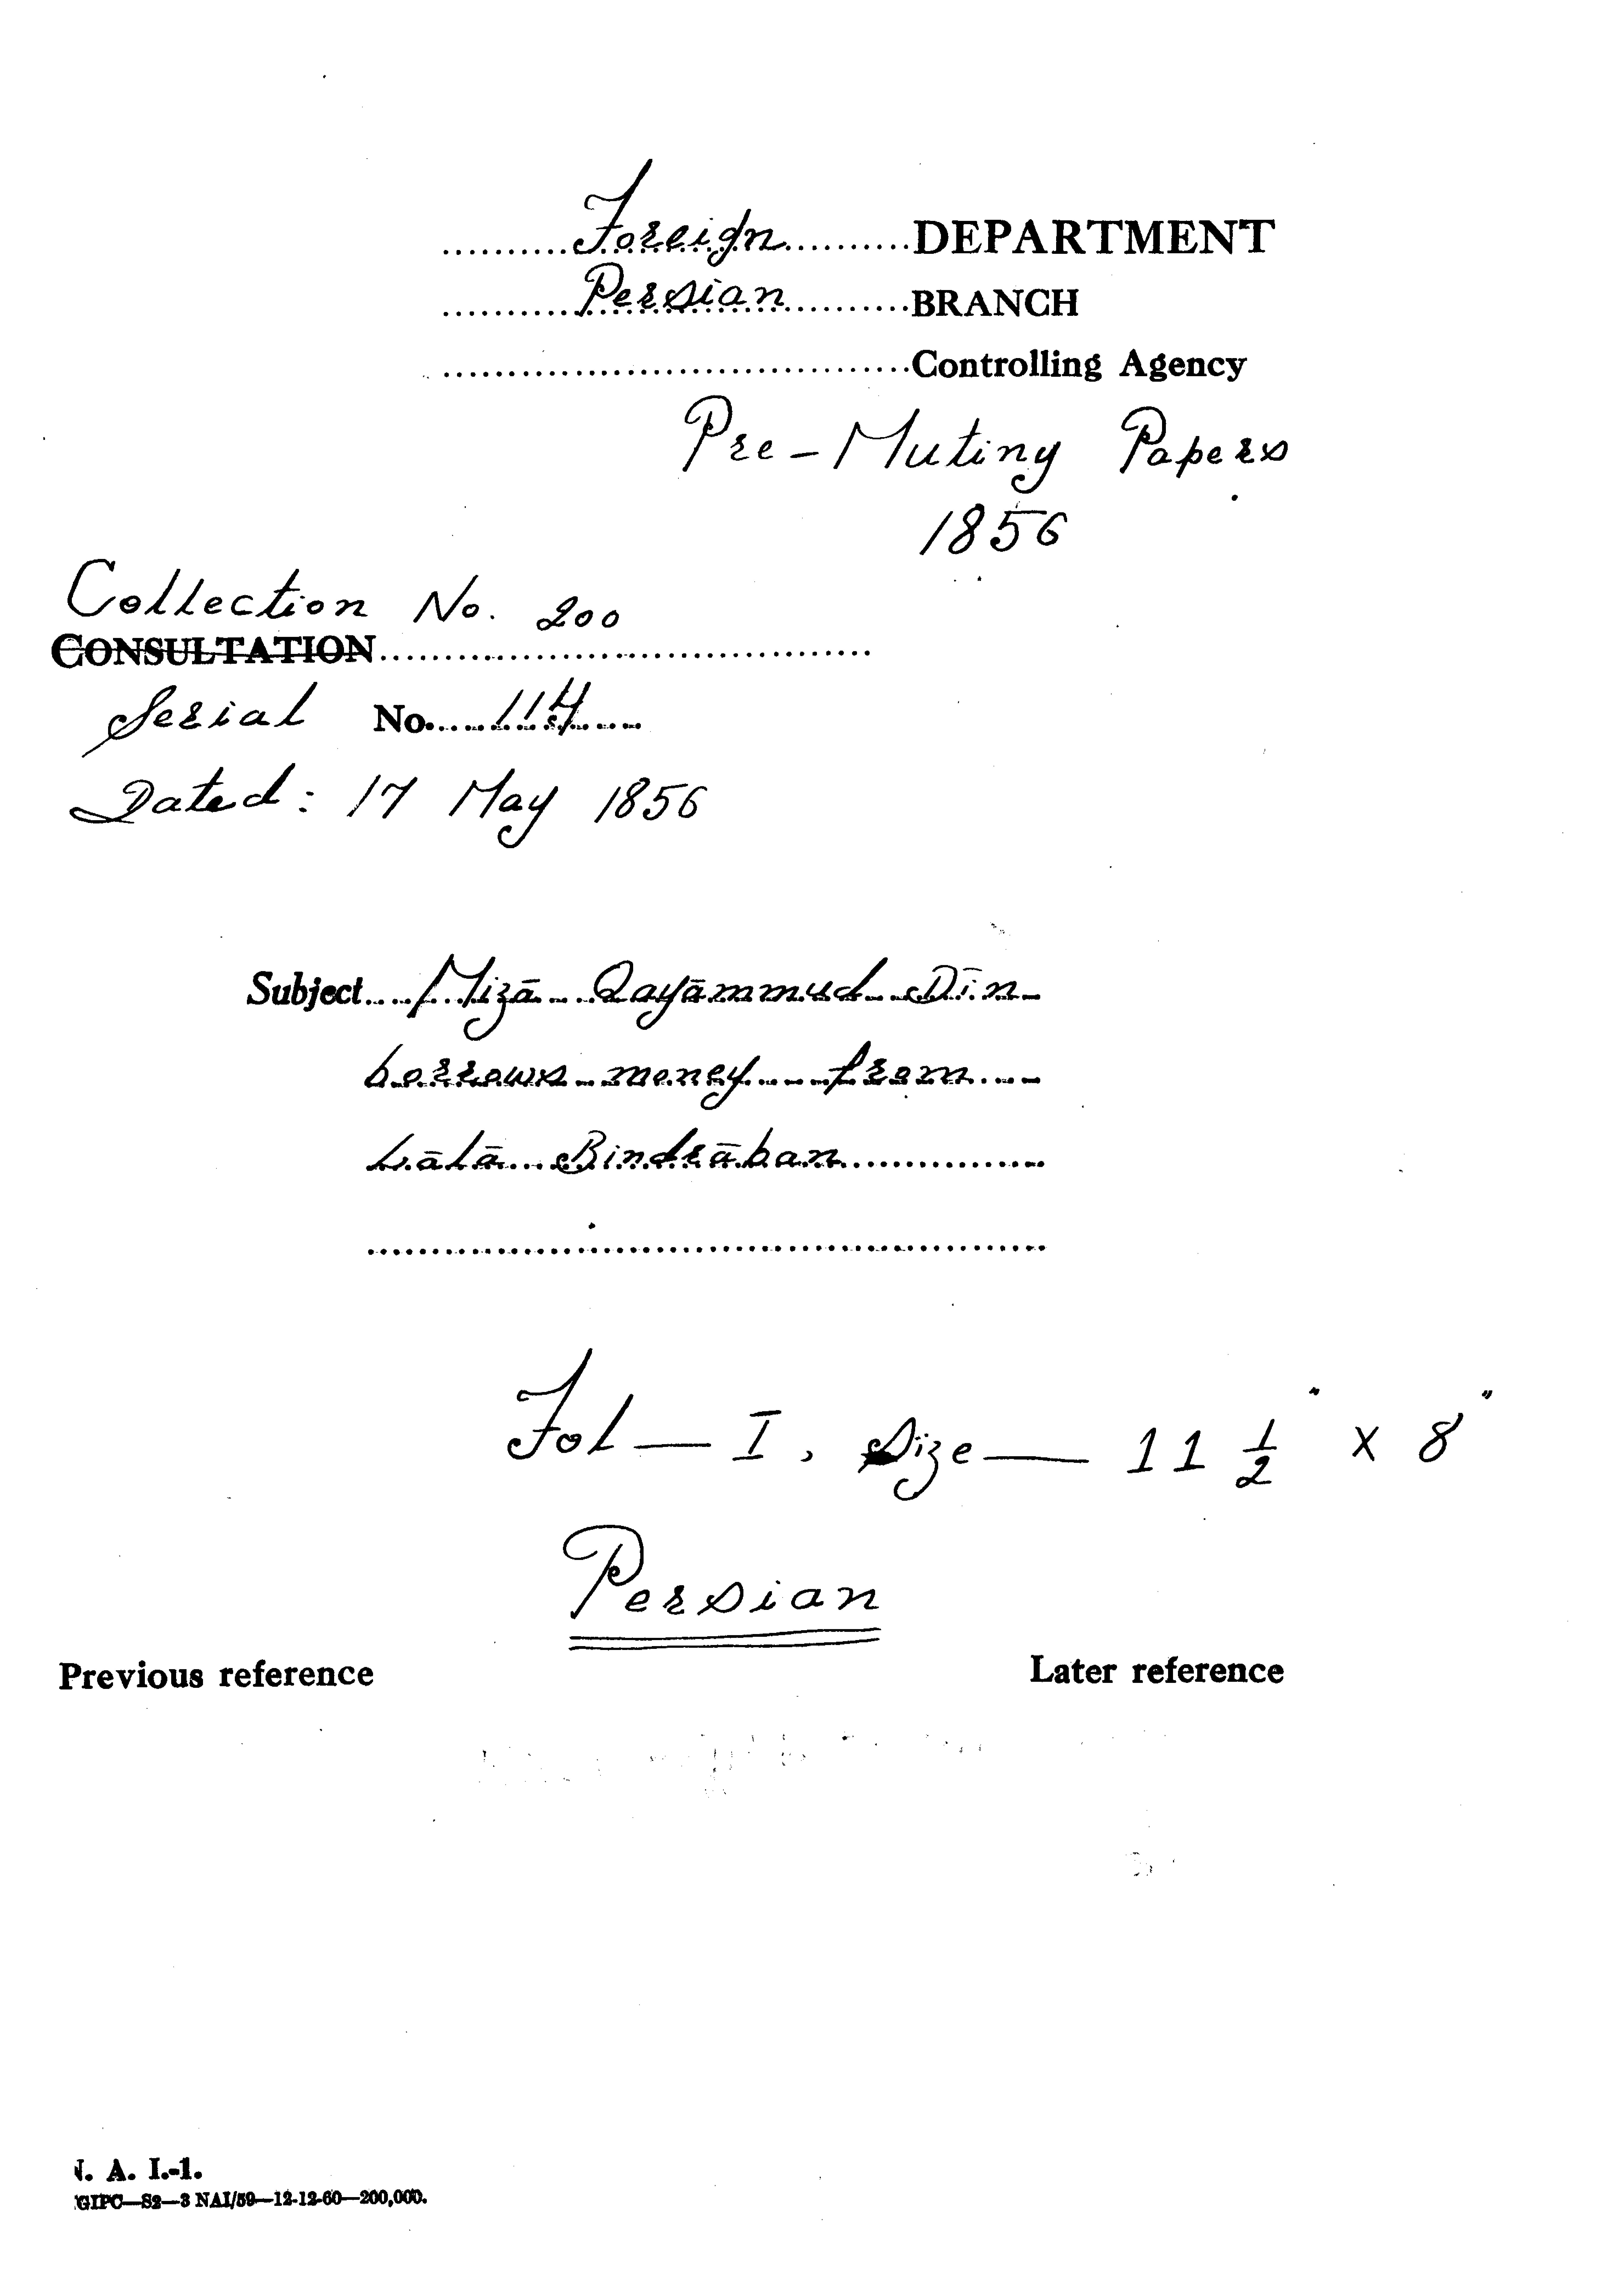 Foreign DEPARTMENT
Persian BRANCH
Controlling Agency
Pre-Mutiny Papers
1856
Collection No. 200
CONSULTATION
Serial No. 114
Dated: 17 May 1856
Subject Mizā Qayāmmud Dīn
borrows money from
Lālā Bindrāban
Fol — I, Size — 11 1/2" x 8"
Persian
Previous reference Later reference
N. A. I.-1.
GIPC—S2—3 NAI/59—12-12-60—200,000.